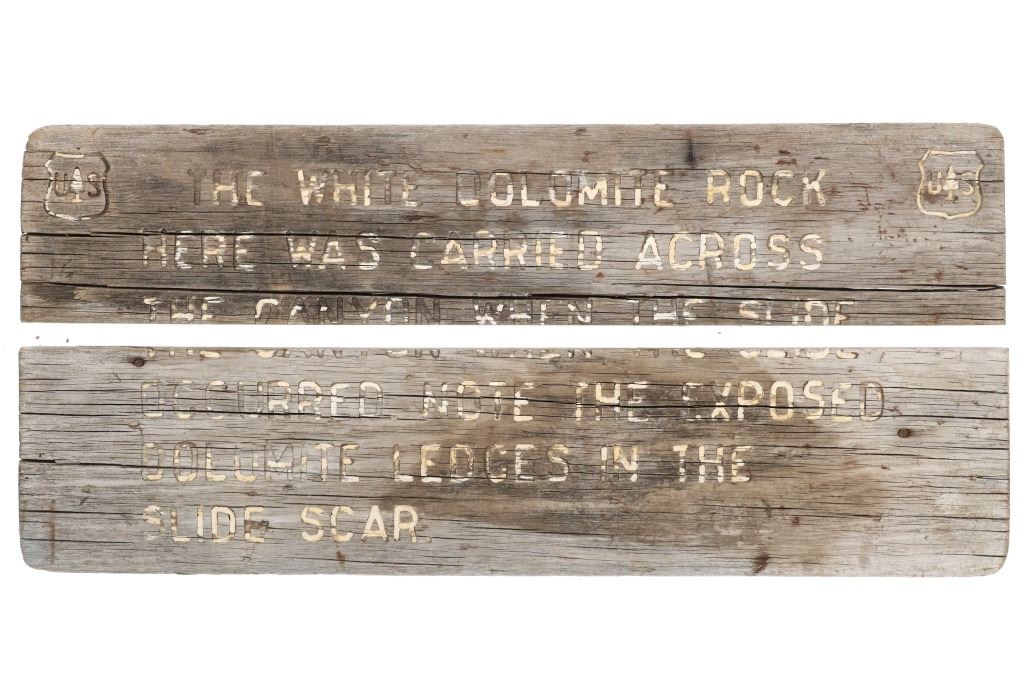 US US
THE WHITE DOLOMITE ROCK
HERE WAS CARRIED ACROSS
THE CANYON WHEN THE SLIDE
OCCURRED NOTE THE EXPOSED
DOLOMITE LEDGES IN THE
SLIDE SCAR.